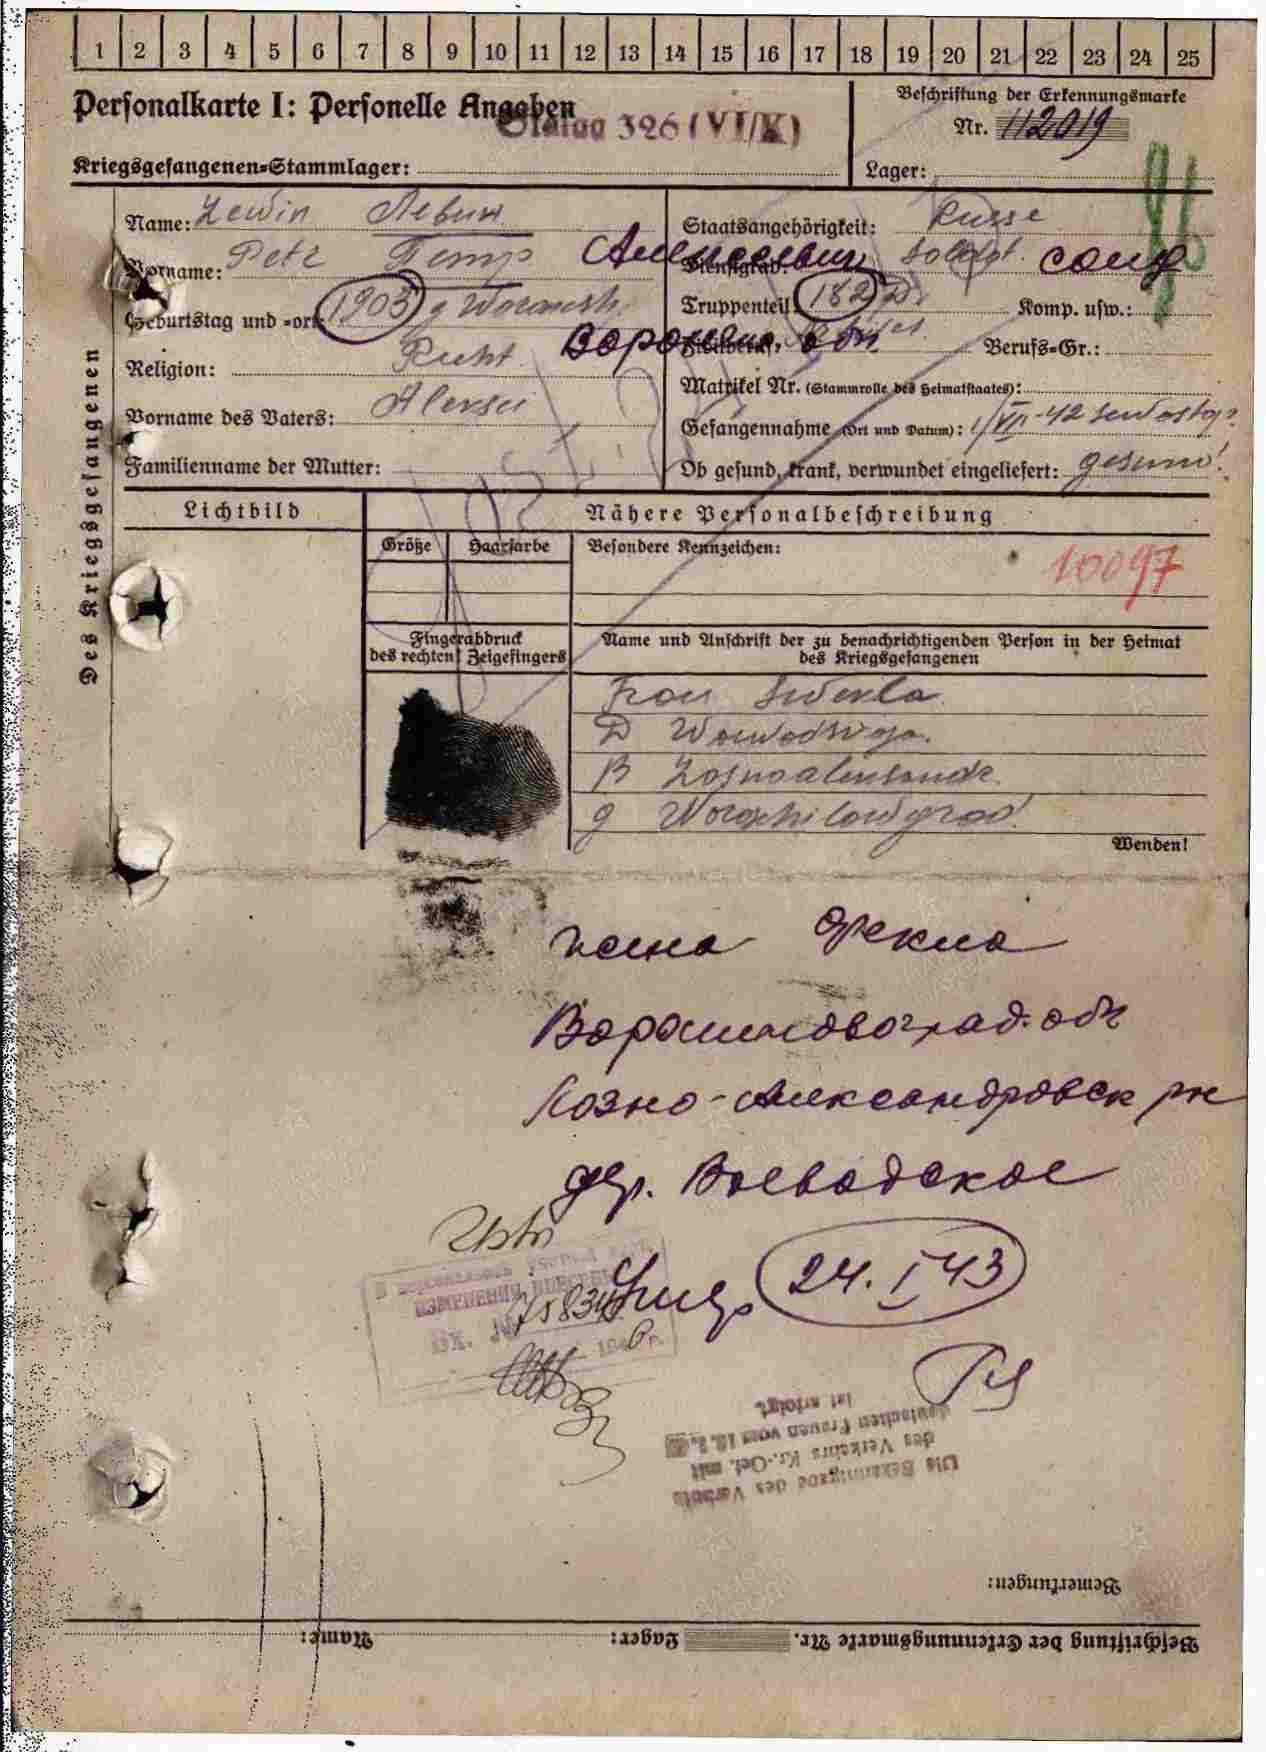 1 2 3 4 5 6 7 8 9 10 11 12 13 14 15 16 17 18 19 20 21 22 23 24 25
Personalkarte I: Personelle Angaben
Stalag 326 (VI/K)
Kriegsgefangenen=Stammlager:
Beschriftung der Erkennungsmarke
Nr. 112019
Lager:
Des Kriegsgefangenen
Name: Lewin Левин
Vorname: Petr Петр Алексеевич
Geburtstag und =ort: 1903 g Woronesh
Воронеж. обл
Religion:
Vorname des Vaters: Alexsei
Familienname der Mutter:
Staatsangehörigkeit: Russe
Dienstgrad: Soldat. солд
Truppenteil: 182 Komp. usw.:
Zivilberuf: Berufs=Gr.:
Matrikel Nr. (Stammrolle des Heimatstaates):
Gefangennahme (Ort und Datum): 1/VII-42 Sewastop
Ob gesund, krank, verwundet eingeliefert: gesund
Lichtbild
Nähere Personalbeschreibung
Größe Haarfarbe Besondere Kennzeichen:
10097
Fingerabdruck
des rechten Zeigefingers
Name und Anschrift der zu benachrichtigenden Person in der Heimat
des Kriegsgefangenen
Frau
D
R
g Woroschilowgrad
Wenden!
жена Фекла
Ворошиловоград. обл
Лозно-Александровск рн
дер. Воевадское
Умер 24.I 43
ИЗМЕНЕНИЯ ВНЕСЕНЫ
Вх. № 75834
Die Bekanntgabe des Verbots
des Verkehrs Kr.-Gef. mit
deutschen Frauen vom
ist erfolgt.
Bemerkungen:
Beschriftung der Erkennungsmarke Nr. Lager: Name: